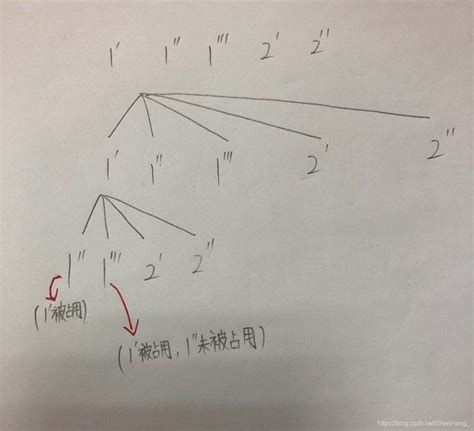 1' 1'' 1''' 2' 2''
1' 1'' 1''' 2' 2''
1'' 1''' 2' 2''
(1'被占用)
(1'被占用,1''未被占用)
https://blog.csdn.net/ShenHang_